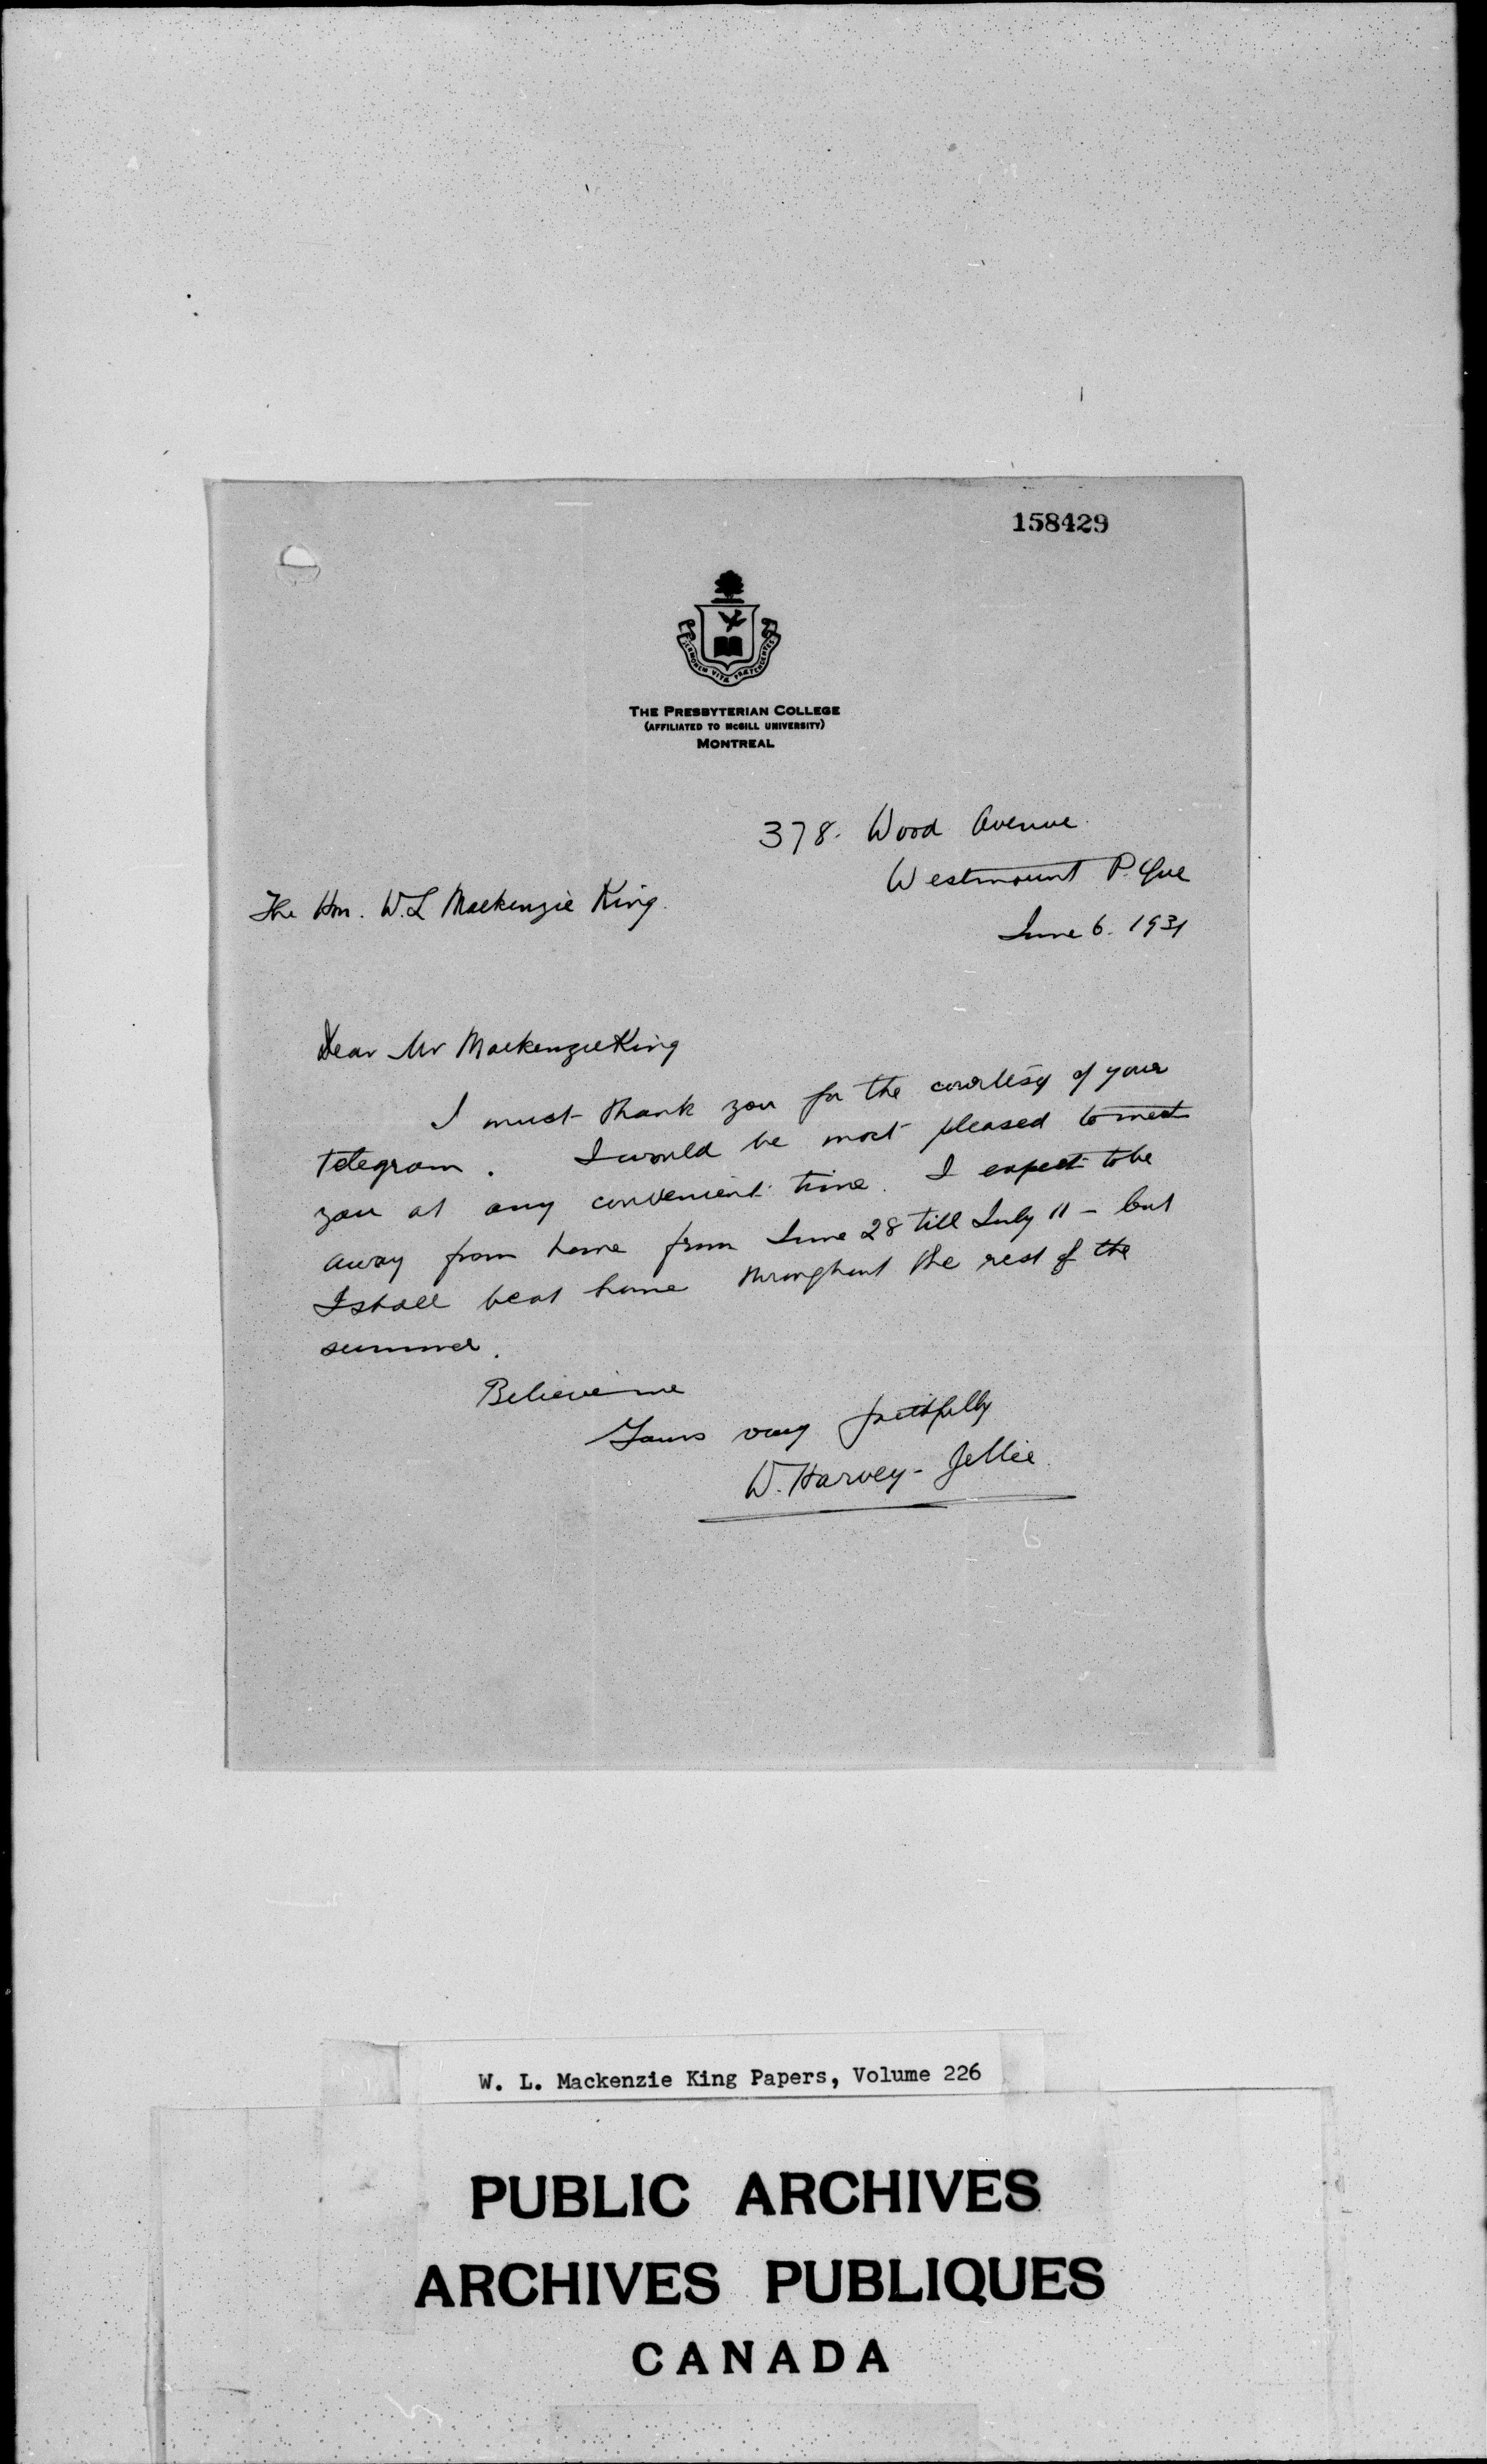 158429
THE PRESBYTERIAN COLLEGE
(AFFILIATED TO McGILL UNIVERSITY)
MONTREAL
378. Wood Avenue.
Westmount P. Que
The Hon. W. L Mackenzie King.
June 6. 1931
Dear Mr Mackenzie King
I must thank you for the courtesy of your
telegram. I would be most pleased to meet
you at any convenient time. I expect to be
away from home from June 28 till July 11 - but
I shall be at home throughout the rest of the
summer.
Believe me
Yours very faithfully
W. Harvey-Jellie.
W. L. Mackenzie King Papers, Volume 226
PUBLIC ARCHIVES
ARCHIVES PUBLIQUES
CANADA